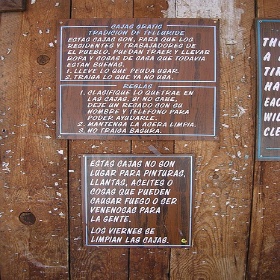 CAJAS GRATIS
TRADICION DE TELLURIDE
ESTAS CAJAS SON, PARA QUE LOS
RESIDENTES Y TRABAJADORES DE
EL PUEBLO, PUEDAN TRAER Y LLEVAR
ROPA Y COSAS DE CASA QUE TODAVIA
ESTAN BUENAS.
1. LLEVE LO QUE PUEDA USAR.
2. TRAIGA LO QUE YA NO USA.
REGLAS
1. CLASIFIQUE LO QUE TRAE EN
LAS CAJAS, SI NO CABE,
DEJE UN RECADO CON SU
NOMBRE Y TELEFONO PARA
PODER AYUDARLE.
2. MANTENGA LA ACERA LIMPIA.
3. NO TRAIGA BASURA.
ESTAS CAJAS NO SON
LUGAR PARA PINTURAS,
LLANTAS, ACEITES O
COSAS QUE PUEDEN
CAUSAR FUEGO O SER
VENENOSAS PARA
LA GENTE.
LOS VIERNES SE
LIMPIAN LAS CAJAS.
TH
A L
TI
HA
EAC
WIL
CLE